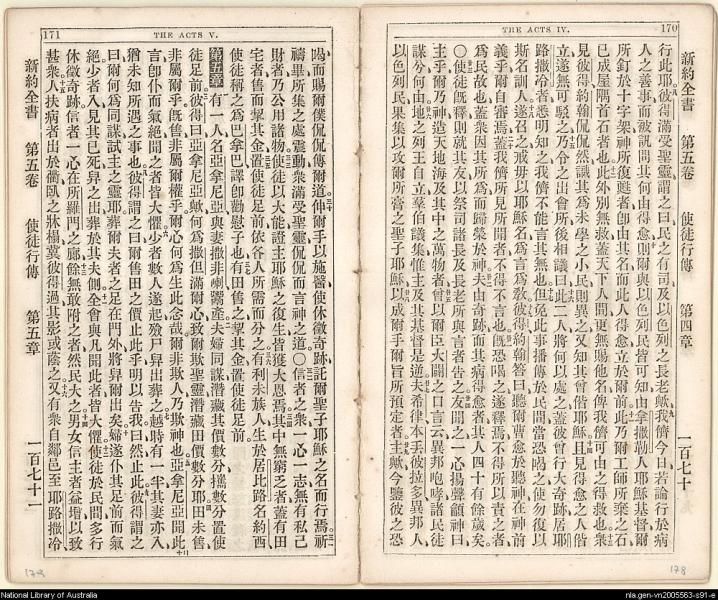 THE ACTS IV. 170
新約全書 第五卷 使徒行傳 第四章 一百七十
行此耶彼得滿受聖靈謂之曰民之有司及以色列之長老歟我儕今日若論行於病
人之善事而被訊問其何由得愈則爾與以色列民皆可知由拿撒勒人耶穌基督爾
所釘於十字架神所復甦者卽由其名而此人得愈立於爾前此乃爾工師所棄之石
已成屋隅首石者也此外別無救蓋天下人間更無賜他名俾我儕可由之得救也衆
見彼得約翰侃侃然識其爲未學之小民則異之又知其曾偕耶穌且見得愈之人偕
立遂無可駁之乃令之出會所後相議曰此二人將何以處之蓋彼曾行大奇跡居耶
路撒冷者悉明知之我儕不能言其無也但免此事播傳於民間當恐喝之使勿復以
斯名訓人遂召之戒毋以耶穌名爲言爲教彼得約翰答曰聽爾曹愈於聽神在神前
義乎爾自審焉蓋我儕所見所聞者不得不言也旣恐喝之遂釋焉不得所以責之者
爲民故也蓋衆因其所爲而歸榮於神夫由奇跡而其病得愈者其人四十有餘歲矣
〇使徒旣釋則就其友以祭司諸長及長老所與言者告之友聞之一心揚聲籲神曰
主乎爾乃神造天地海及其中之萬物者曾以爾臣大闢之口言云異邦咆哮諸民徒
謀兮何由地之列王自立羣伯議集惟主及其基督是逆夫希律本丢彼拉多異邦人
以色列民果集以攻爾所膏之聖子耶穌以成爾手爾旨所預定者主歟今鑒彼之恐
178
171 THE ACTS V.
喝而賜爾僕侃侃傳爾道伸爾手以施醫使休徵奇跡託爾聖子耶穌之名而行焉祈
禱畢所集之處震動衆滿受聖靈侃侃而言神之道〇信者之衆一心一志無有私己
財者乃公用諸物使徒以大能證主耶穌之復生皆獲大恩焉其中無窮乏者蓋有田
宅者售而挈其金置使徒足前依各人所需而分之有利未族人生於居比路名約西
使徒稱之爲巴拿巴譯卽勸慰子也有田售之挈其金置使徒足前
第五章 有一人名亞拿尼亞與妻撒非喇鬻產夫婦同謀潛藏其價數分攜數分置使
徒足前彼得曰亞拿尼亞歟何爲撒但滿爾心致爾欺聖靈潛藏田價數分耶田未售
非屬爾乎旣售非屬爾權乎爾心何爲生此念哉爾非欺人乃欺神也亞拿尼亞聞此
言卽仆而氣絕聞之者皆大懼少者數人遂起殮尸舁出葬之越時有一半其妻亦入
猶未知所遇之事也彼得謂之曰爾售田之價止此乎明以告我曰然止此彼得謂之
曰爾何爲同謀試主之靈耶葬爾夫者之足在門外將舁爾出矣婦遂仆其足前而氣
絕少者入見其已死舁之出葬於其夫側全會與凡聞此者皆大懼使徒於民間多行
休徵奇跡信者一心在所羅門之廊餘無敢附之者然民大之男女信主者益增以致
甚衆人扶病者出於衢臥之牀榻冀彼得過其影或蔭之又有衆自鄰邑至耶路撒冷
新約全書 第五卷 使徒行傳 第五章 一百七十一
National Library of Australia
nla.gen-vn2005563-s91-e